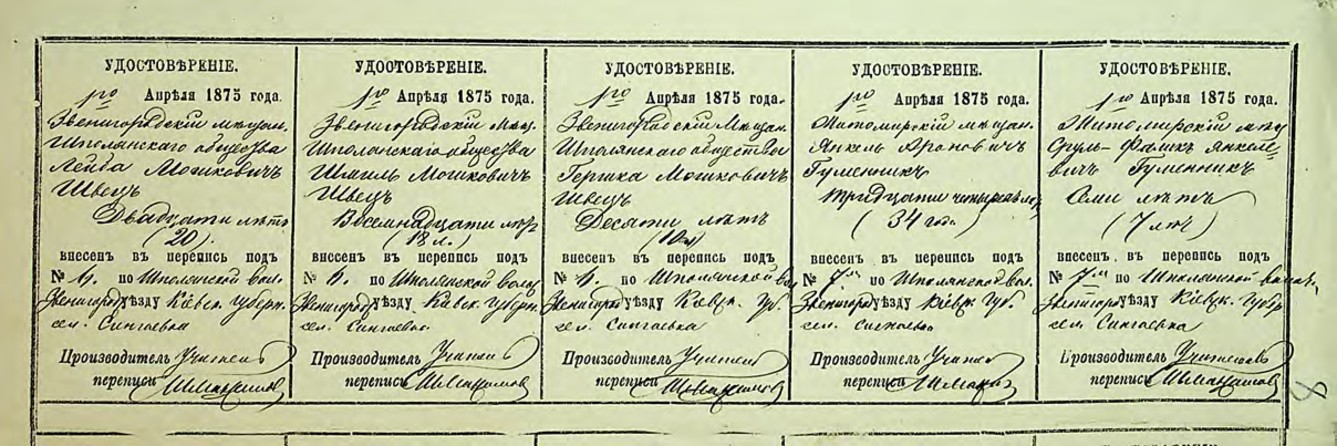 УДОСТОВѢРЕНІЕ.
1го Апрѣля 1875 года.
Звенигородскій мѣщан.
Шполянскаго общества
Лейба Мошковичъ
Швецъ
Двадцати лѣтъ
(20).
внесенъ въ перепись подъ
№ 6. по Шполянской вол.
Звенигород уѣзду Кіевск. губерн.
сел. Сигнаевка
Производитель
переписи
УДОСТОВѢРЕНІЕ.
1го Апрѣля 1875 года.
Звенигородскій мѣщ.
Шполянскаго общества
Шмиль Мошковичъ
Швецъ
Восемнадцати лѣт
(18 л.)
внесенъ въ перепись подъ
№ 6. по Шполянской волос
Звенигород уѣзду Кіевск. губерн.
сел. Сигнаевка
Производитель
переписи
УДОСТОВѢРЕНІЕ.
1го Апрѣля 1875 года.
Звенигородскій Мѣщан.
Шполянскаго общества
Гершка Мошковичъ
Швецъ
Десяти лѣтъ
(10 л)
внесенъ въ перепись подъ
№ 6. по Шполянской вол
Звенигород уѣзду Кіевск. Губ.
сел. Сигнаевка
Производитель
переписи
УДОСТОВѢРЕНІЕ.
1го Апрѣля 1875 года.
Житомирскій мѣщан.
Янкель Ароновичъ
Гуменникъ
тридцати четырехъ
(34 год.
внесенъ въ перепись подъ
№ 7м по Шполянской вол.
Звенигород уѣзду Кіевск. Губ.
сел. Сигнаевка
Производитель
переписи
УДОСТОВѢРЕНІЕ.
1го Апрѣля 1875 года.
Житомирскій мѣщ
Сруль-Файикъ Янкеле-
вичъ Гуменникъ
Семи лѣтъ
(7 лѣтъ)
внесенъ въ перепись подъ
№ 7м по Шполянской волост.
Звенигор уѣзду Кіевск. Губер
сел. Сигнаевка
Производитель
переписи
8